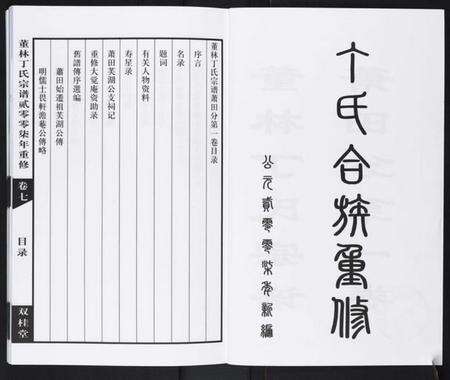 丁氏合族重修
公元貳零零柒年新編
董林丁氏宗谱莆田分第一卷目录
序言
名录
题词
有关人物资料
寿星录
莆田芙湖公支祠记
重修大觉庵资助录
舊譜傳序選编
莆田始遷祖芙湖公傳
明儒士畏軒澹菴公傳略
董林丁氏宗谱贰零零柒年重修
卷七
目录
双桂堂